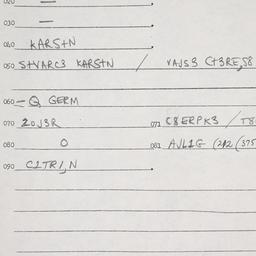 020 —
030 —
040 KARS+N
050 S+VARC3 KARS+N / VAJS3 C+3RE,S8
060 — Q GERM
070 20J3R 071 C8ERPK3 / T8
080 0 081 AJL1G (212 (375
090 C2TRI,N